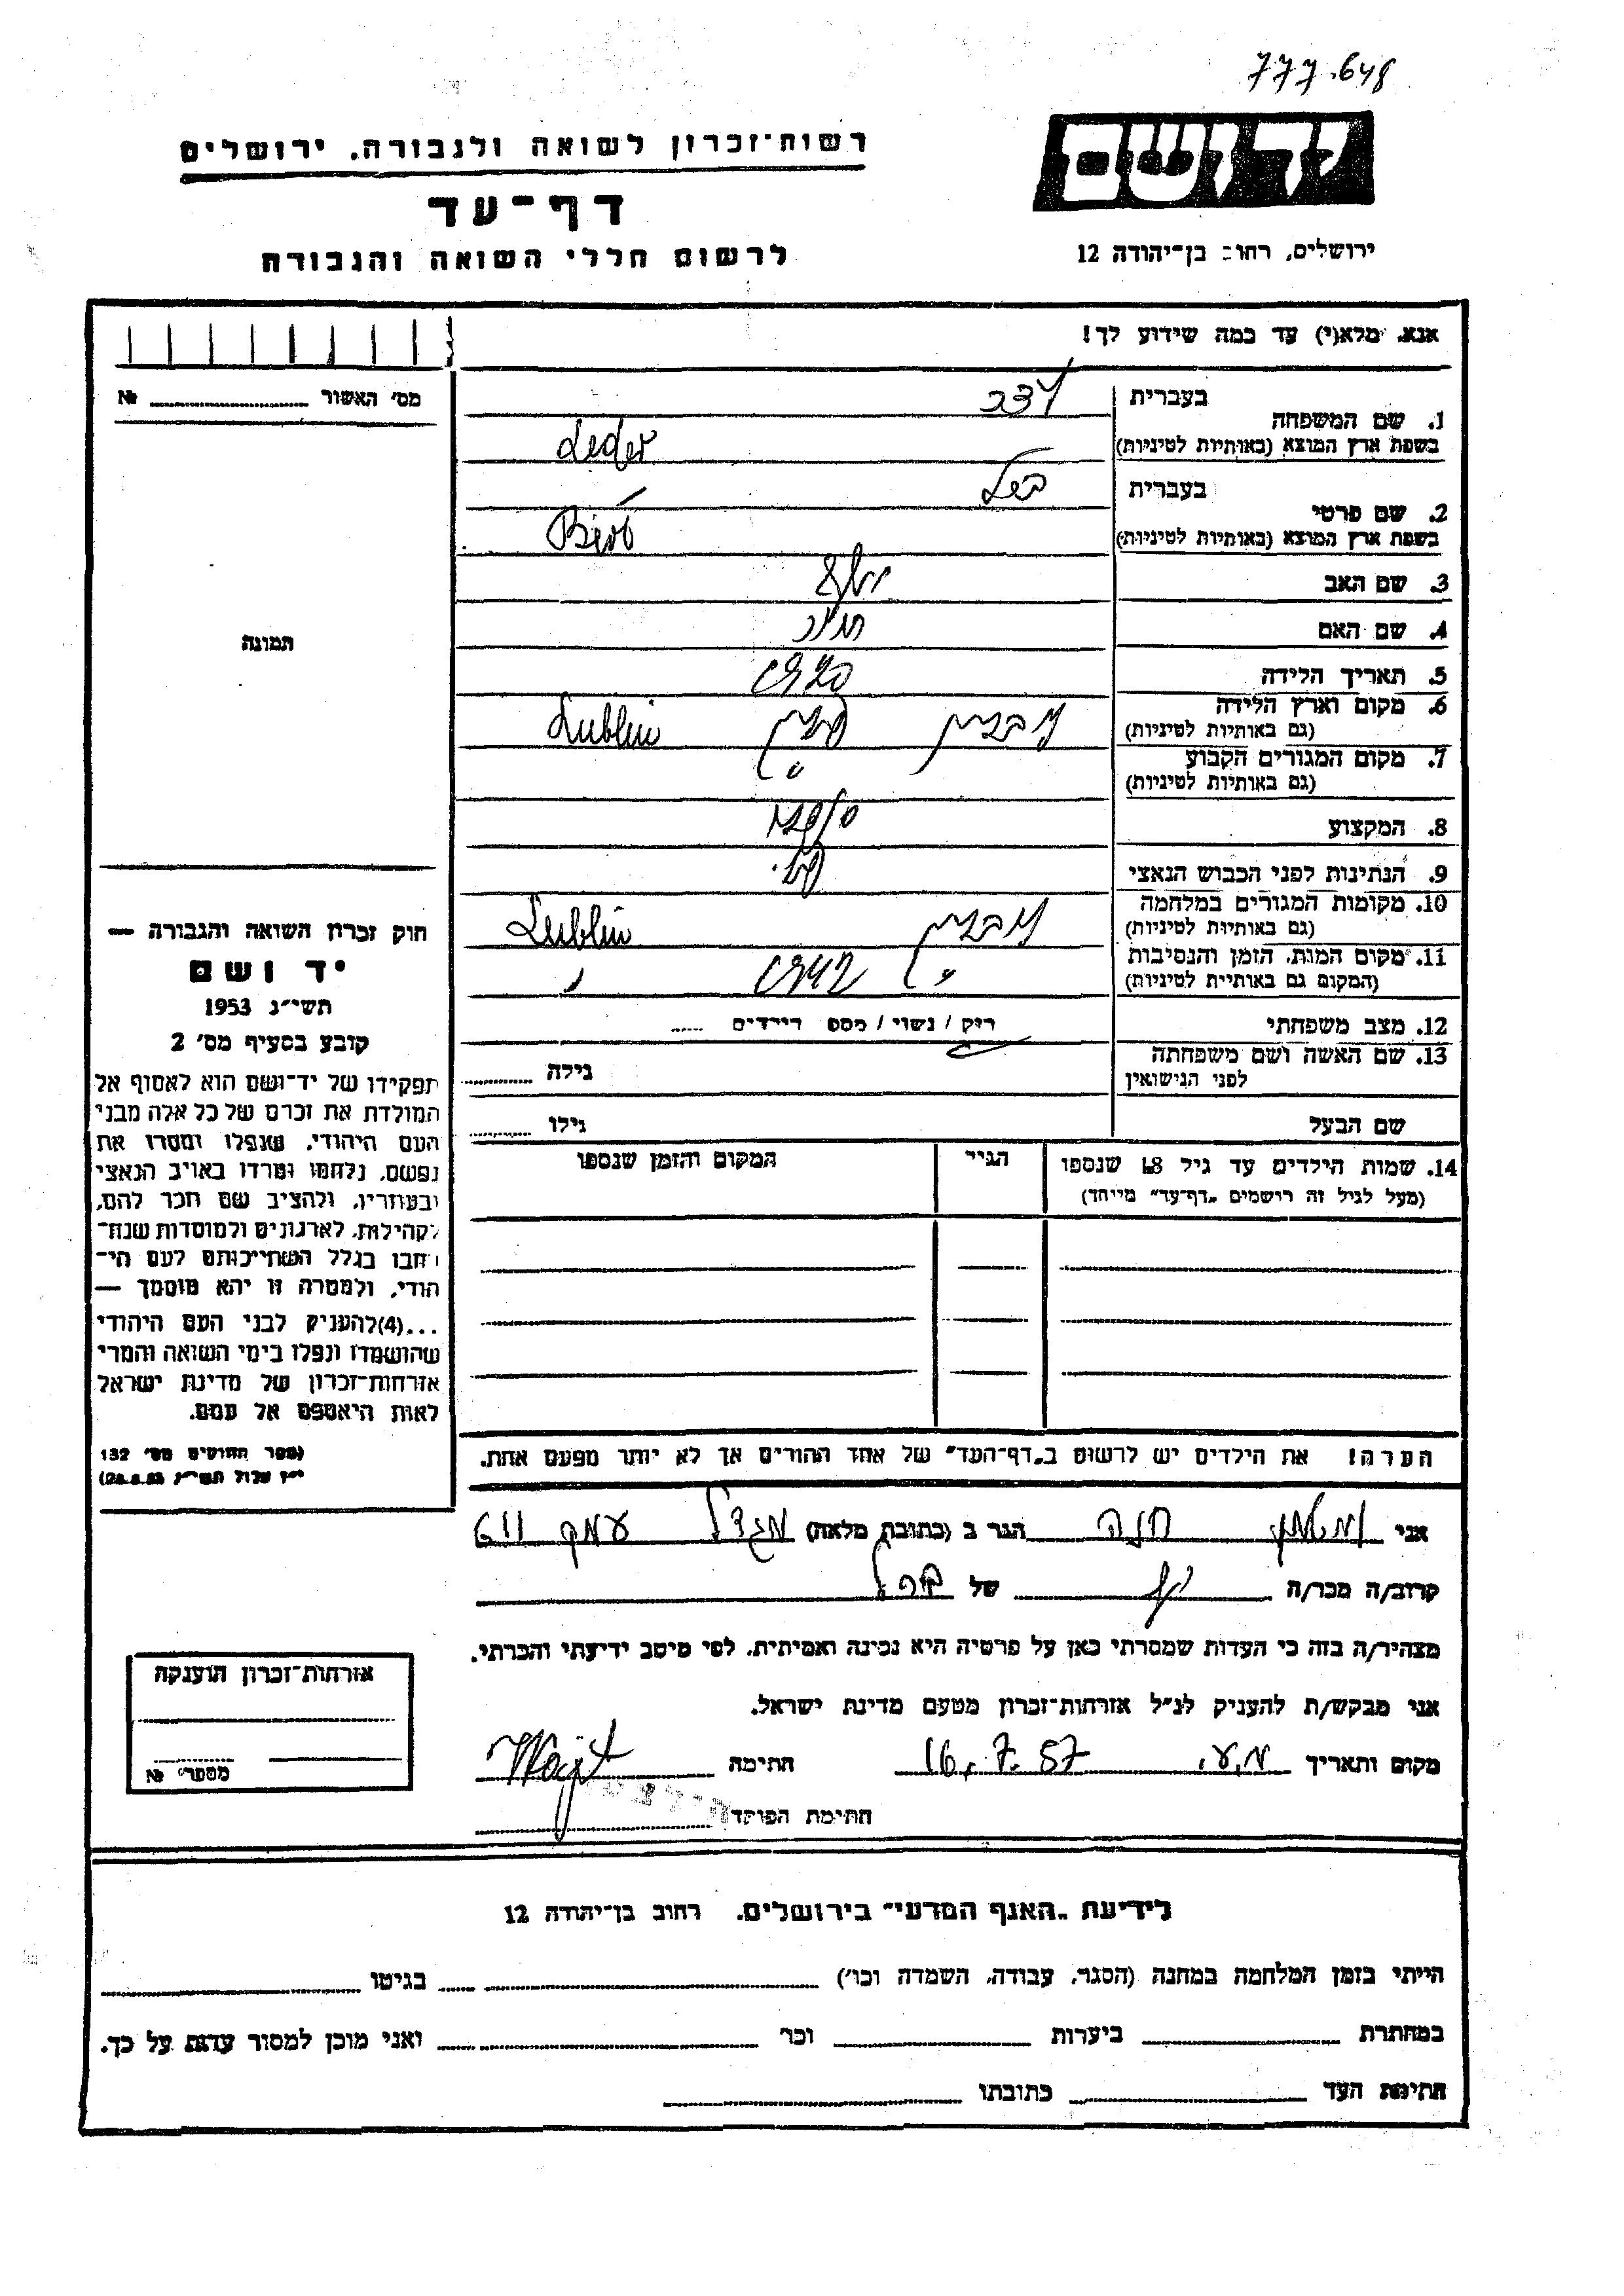 777.648
רשות־זכרון לשואה ולגבורה, ירושלים
יד ושם
דף־עד
לרשום חללי השואה והגבורה
ירושלים, רחוב בן־יהודה 12
אנא, מלא(י) עד כמה שידוע לך!
מס' האשור №
1. שם המשפחה
בעברית לדר
בשפת ארץ המוצא (באותיות לטיניות) Leder
2. שם פרטי
בעברית
בשפת ארץ המוצא (באותיות לטיניות)
3. שם האב
4. שם האם
5. תאריך הלידה 1920
6. מקום וארץ הלידה (גם באותיות לטיניות) לובלין פולין Lublin
7. מקום המגורים הקבוע (גם באותיות לטיניות)
8. המקצוע
9. הנתינות לפני הכבוש הנאצי
10. מקומות המגורים במלחמה (גם באותיות לטיניות) לובלין Lublin
11. מקום המות, הזמן והנסיבות (המקום גם באותיות לטיניות) 1942
12. מצב משפחתי רוק / נשוי / מספר הילדים
13. שם האשה ושם משפחתה לפני הנישואין גילה
שם הבעל גילו
14. שמות הילדים עד גיל 18 שנספו (מעל לגיל זה רושמים "דף־עד" מיוחד) הגיל המקום והזמן שנספו
הערה! את הילדים יש לרשום ב"דף־העד" של אחד ההורים אך לא יותר מפעם אחת.
תמונה
חוק זכרון השואה והגבורה —
יד ושם
תשי"ג 1953
קובע בסעיף מס' 2
תפקידו של יד־ושם הוא לאסוף אל
המולדת את זכרם של כל אלה מבני
העם היהודי, שנפלו ומסרו את
נפשם, נלחמו ומרדו באויב הנאצי
ובעוזריו, ולהציב שם וזכר להם,
לקהילות, לארגונים ולמוסדות שנח־
רבו בגלל השתייכותם לעם הי־
הודי, ולמטרה זו יהא מוסמך —
...(4) להעניק לבני העם היהודי
שהושמדו ונפלו בימי השואה והמרי
אזרחות־זכרון של מדינת ישראל
לאות היאספם אל עמם.
(ספר החוקים מס' 132
י"ז אלול תשי"ג 28.8.53)
אני חנה הגר ב (כתובת מלאה) מגדל עמק 611
קרוב/ה מכר/ה של
מצהיר/ה בזה כי העדות שמסרתי כאן על פרטיה היא נכונה ואמיתית, לפי מיטב ידיעתי והכרתי.
אני מבקש/ת להעניק לנ"ל אזרחות־זכרון מטעם מדינת ישראל.
מקום ותאריך מ.ע. 16.7.57 חתימה
חתימת הפוקד
אזרחות־זכרון הוענקה
מספר №
לידיעת "האגף המדעי" בירושלים, רחוב בן־יהודה 12
הייתי בזמן המלחמה במחנה (הסגר, עבודה, השמדה וכו') בגיטו
במחתרת ביערות וכו' ואני מוכן למסור עדות על כך.
חתימת העד כתובתו